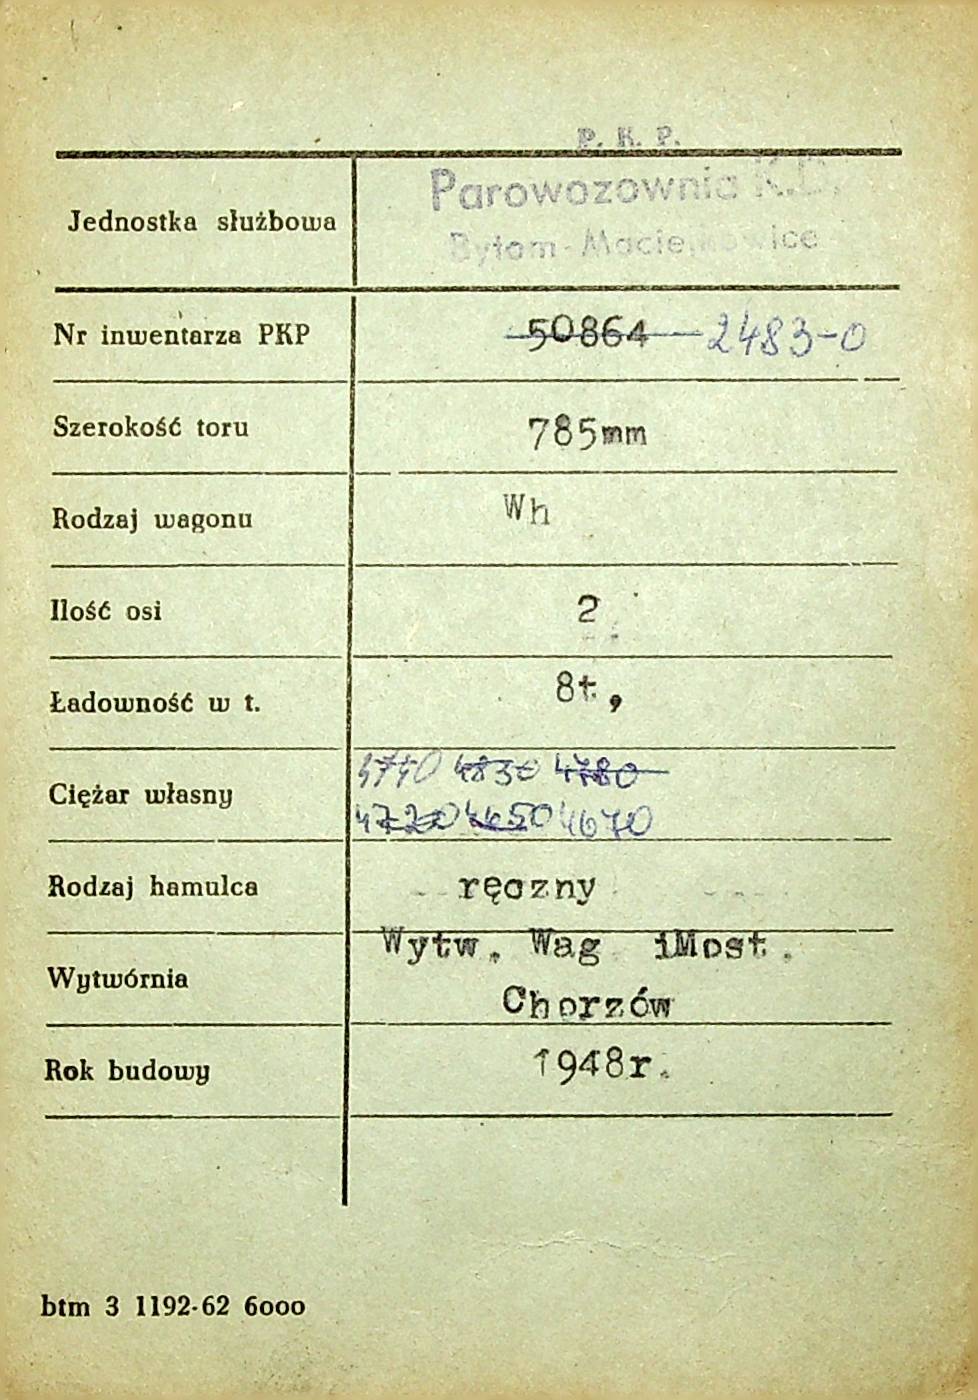 P. K. P.
Parowozownia K.D.
Jednostka służbowa
Bytom-Maciejkowice
Nr inwentarza PKP 50864 2483-0
Szerokość toru 785mm
Rodzaj wagonu Wh
Ilość osi 2
Ładowność w t. 8t,
4740 4830 4780
Ciężar własny
4720 4650 4670
Rodzaj hamulca ręczny
Wytw. Wag iMost.
Wytwórnia
Chorzów
Rok budowy 1948r.
btm 3 1192-62 6000